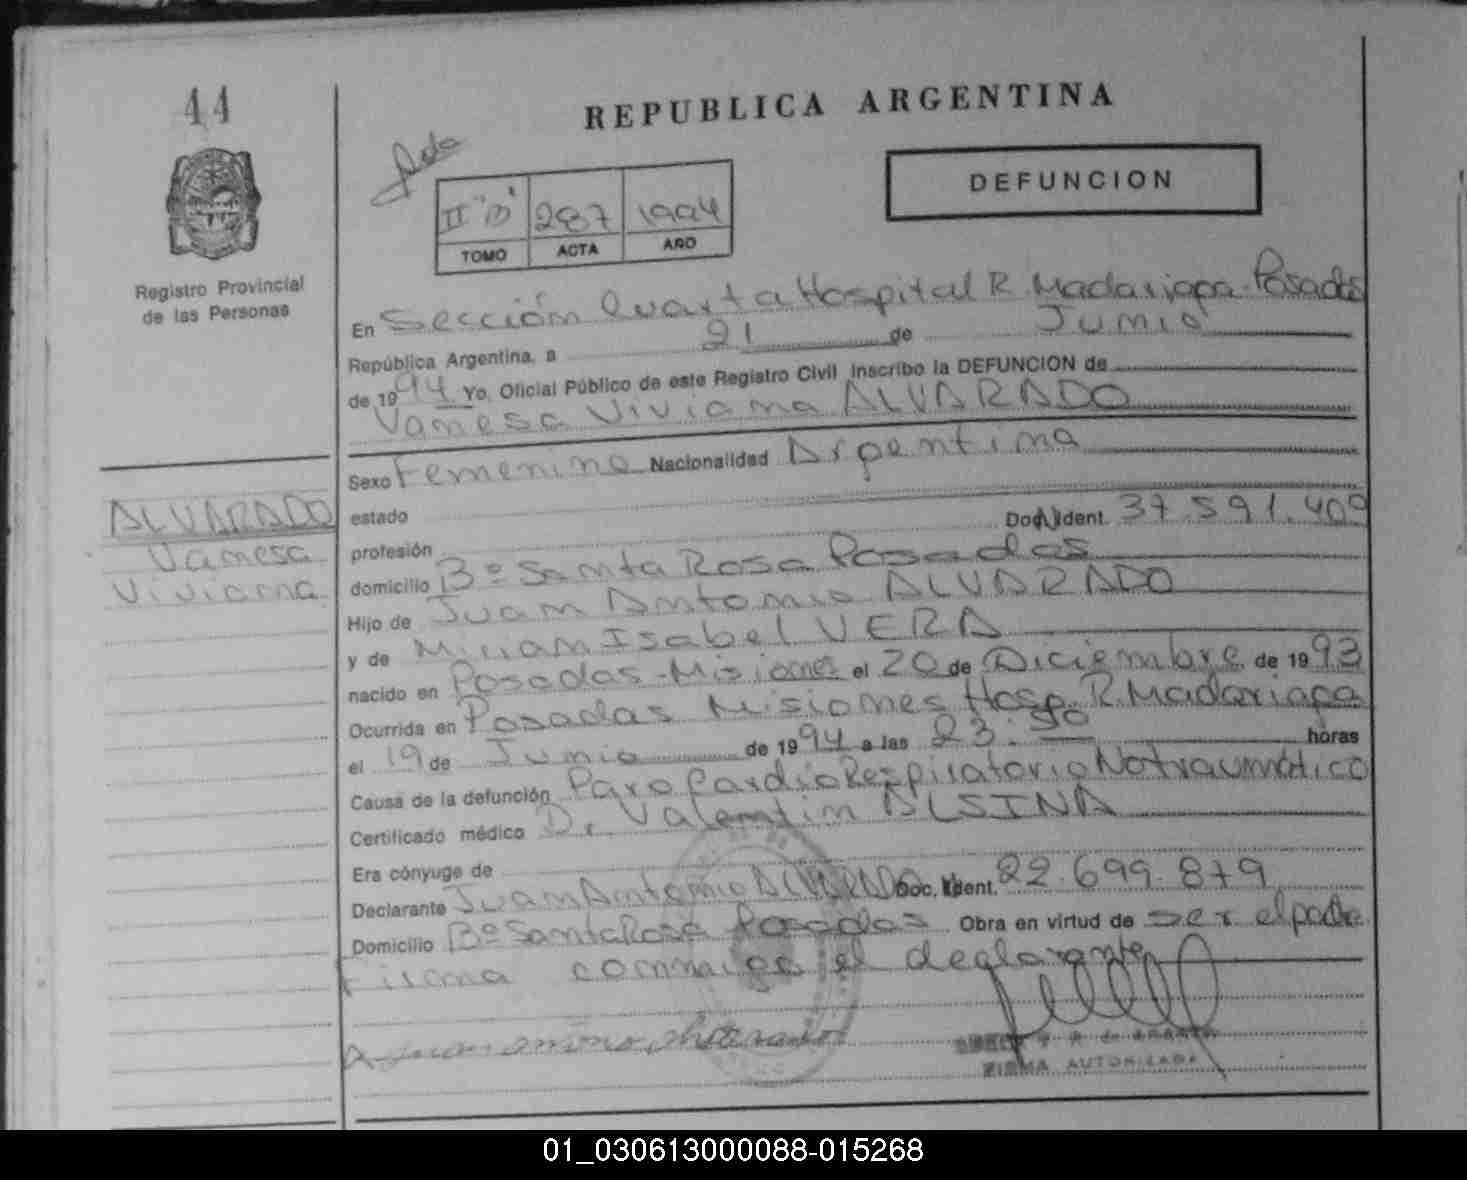 44
REPUBLICA ARGENTINA
DEFUNCION
II "B" 287 1994
TOMO ACTA AÑO
Registro Provincial
de las Personas
En Sección Cuarta Hospital R. Madariaga Posadas
República Argentina, a 21 de Junio
de 1994 Yo, Oficial Público de este Registro Civil inscribo la DEFUNCION de
Vanesa Viviana ALVARADO
Sexo Femenino Nacionalidad Argentina
ALVARADO
Vanesa
Viviana
estado
profesión Doc. Ident. 37.591.409
domicilio Bº Santa Rosa Posadas
Hijo de Juan Antonio ALVARADO
y de Miriam Isabel VERA
nacido en Posadas - Misiones el 20 de Diciembre de 1993
Ocurrida en Posadas Misiones Hosp. R. Madariaga
el 19 de Junio de 1994 a las 23:50 horas
Causa de la defunción Paro Cardio Respiratorio No traumático
Certificado médico Dr. Valentin ALSINA
Era cónyuge de
Declarante Juan Antonio ALVARADO Doc. Ident. 22.699.879
Domicilio Bº Santa Rosa Posadas Obra en virtud de ser el padre
Firma conmigo el declarante
FIRMA AUTORIZADA
01_030613000088-015268